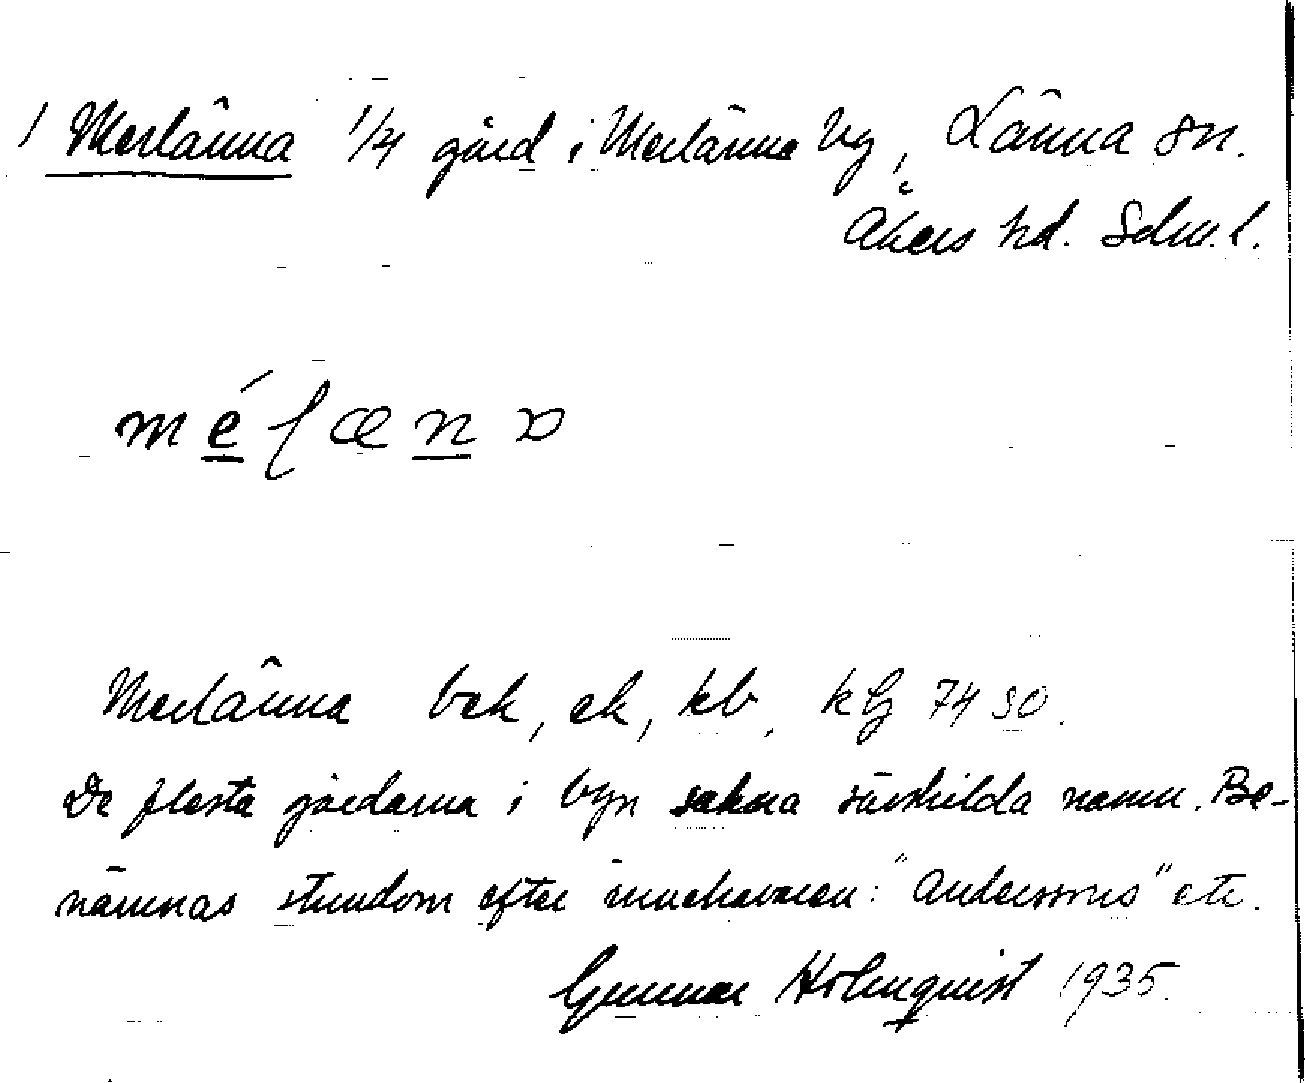 1 Merlänna 1/4 gård i Merlänna by, Länna sn.
Åkers hd. Sdm.l.
Merlänna bek, ek, kb, kbg 74 SO.
De flesta gårdarna i byn sakna särskilda namn. Be-
nämnas stundom efter innehavaren: "Anderssons" etc.
Gunnar Holmquist 1935.